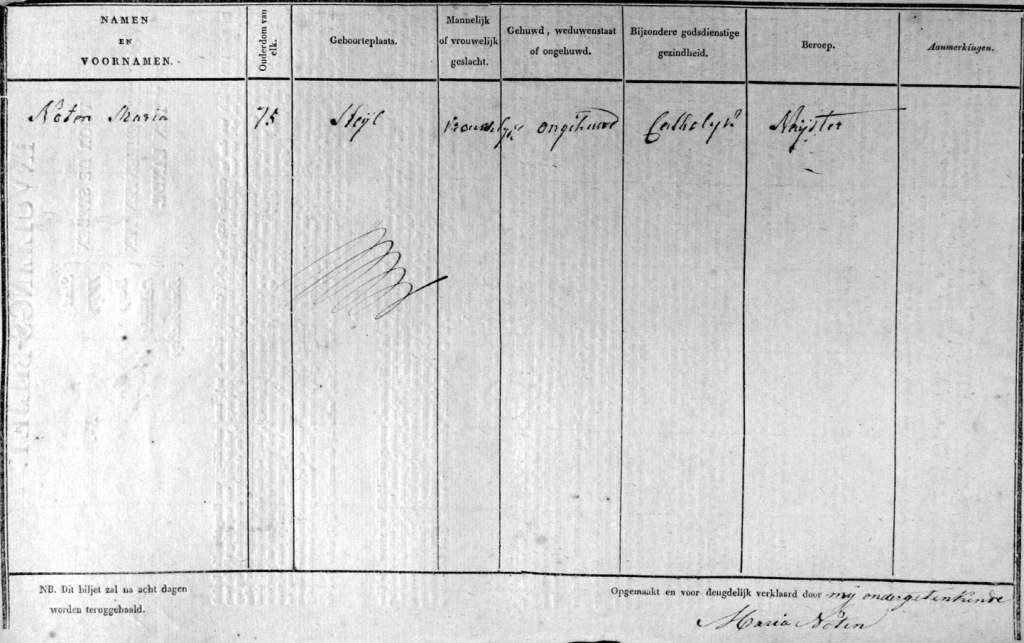 NAMEN
EN
VOORNAMEN.
Ouderdom van
elk.
Geboorteplaats.
Mannelijk
of vrouwelijk
geslacht.
Gehuwd, weduwenstaat
of ongehuwd.
Bijzondere godsdienstige
gezindheid.
Beroep.
Aanmerkingen.
Noten Maria 75 Heijl vrouwelyk ongehuwd Catholyk Naijster
NB. Dit biljet zal na acht dagen
worden teruggehaald.
Opgemaakt en voor deugdelijk verklaard door mij ondergetenkende
Maria Noten